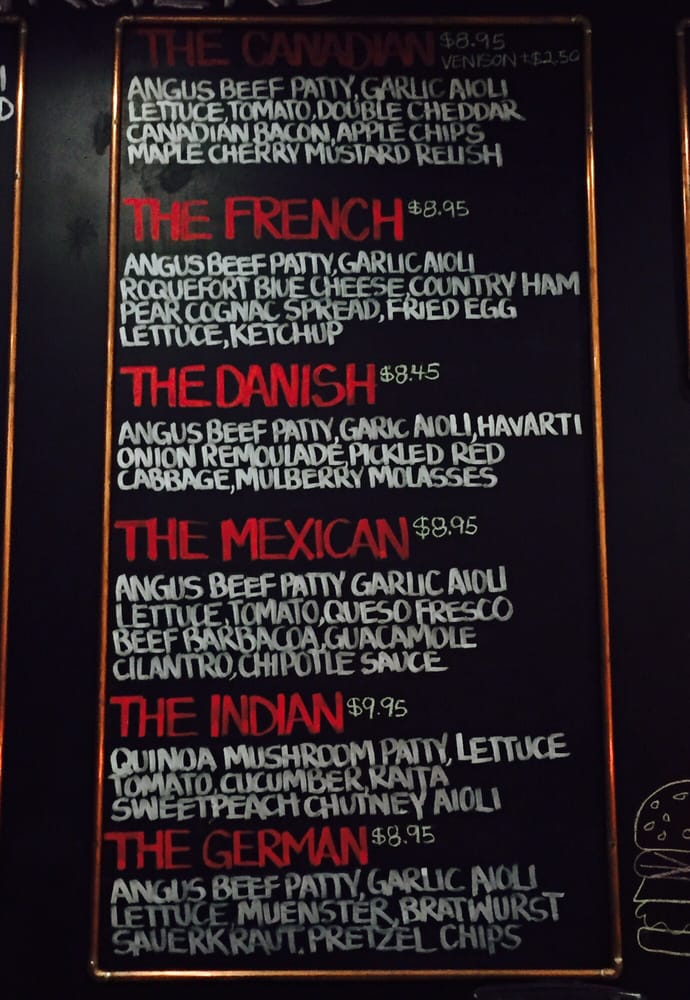 THE CANADIAN $8.95
VENISON +$2.50
ANGUS BEEF PATTY, GARLIC AIOLI
LETTUCE, TOMATO, DOUBLE CHEDDAR
CANADIAN BACON, APPLE CHIPS
MAPLE CHERRY MUSTARD RELISH
THE FRENCH $8.95
ANGUS BEEF PATTY, GARLIC AIOLI
ROQUEFORT BLUE CHEESE, COUNTRY HAM
PEAR COGNAC SPREAD, FRIED EGG
LETTUCE, KETCHUP
THE DANISH $8.45
ANGUS BEEF PATTY, GARIC AIOLI, HAVARTI
ONION REMOULADE, PICKLED RED
CABBAGE, MULBERRY MOLASSES
THE MEXICAN $8.95
ANGUS BEEF PATTY GARLIC AIOLI
LETTUCE, TOMATO, QUESO FRESCO
BEEF BARBACOA, GUACAMOLE
CILANTRO, CHIPOTLE SAUCE
THE INDIAN $9.95
QUINOA MUSHROOM PATTY, LETTUCE
TOMATO, CUCUMBER, RAITA
SWEETPEACH CHUTNEY AIOLI
THE GERMAN $8.95
ANGUS BEEF PATTY, GARLIC AIOLI
LETTUCE, MUENSTER, BRATWURST
SAUERKRAUT, PRETZEL CHIPS